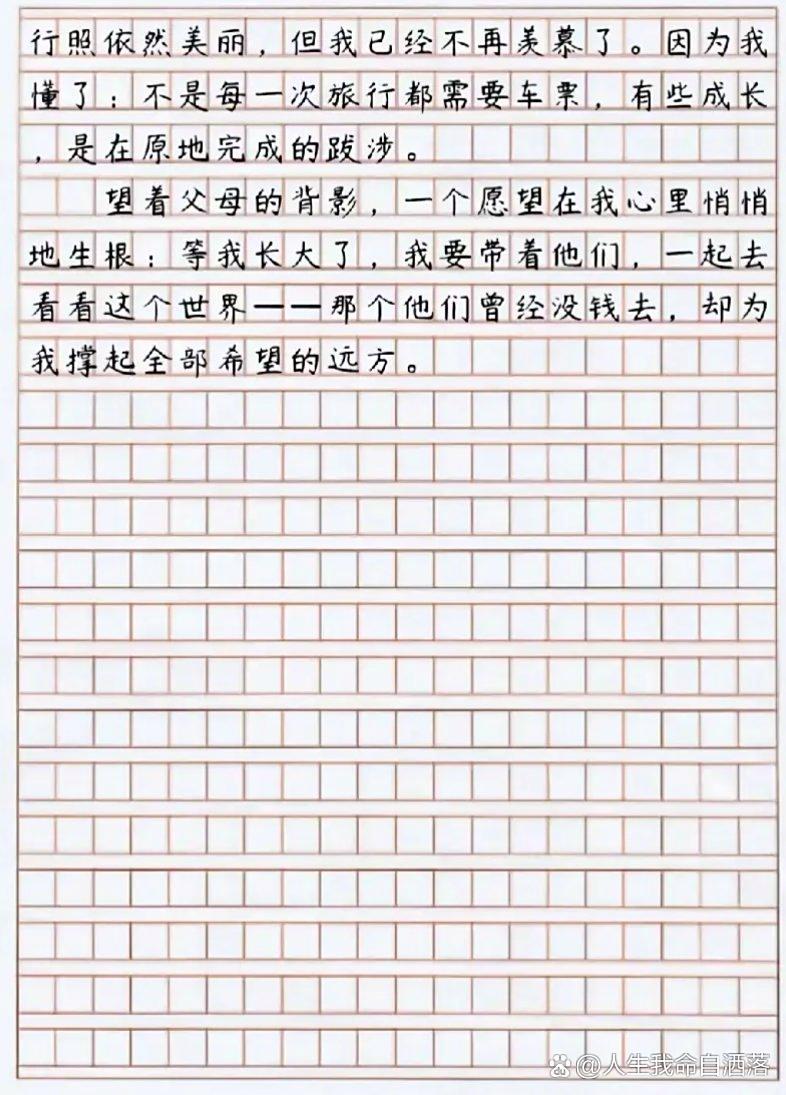 行照依然美丽，但我已经不再羡慕了。因为我
懂了：不是每一次旅行都需要车票，有些成长
，是在原地完成的跋涉。
望着父母的背影，一个愿望在我心里悄悄
地生根：等我长大了，我要带着他们，一起去
看看这个世界——那个他们曾经没钱去，却为
我撑起全部希望的远方。
@人生我命自洒落